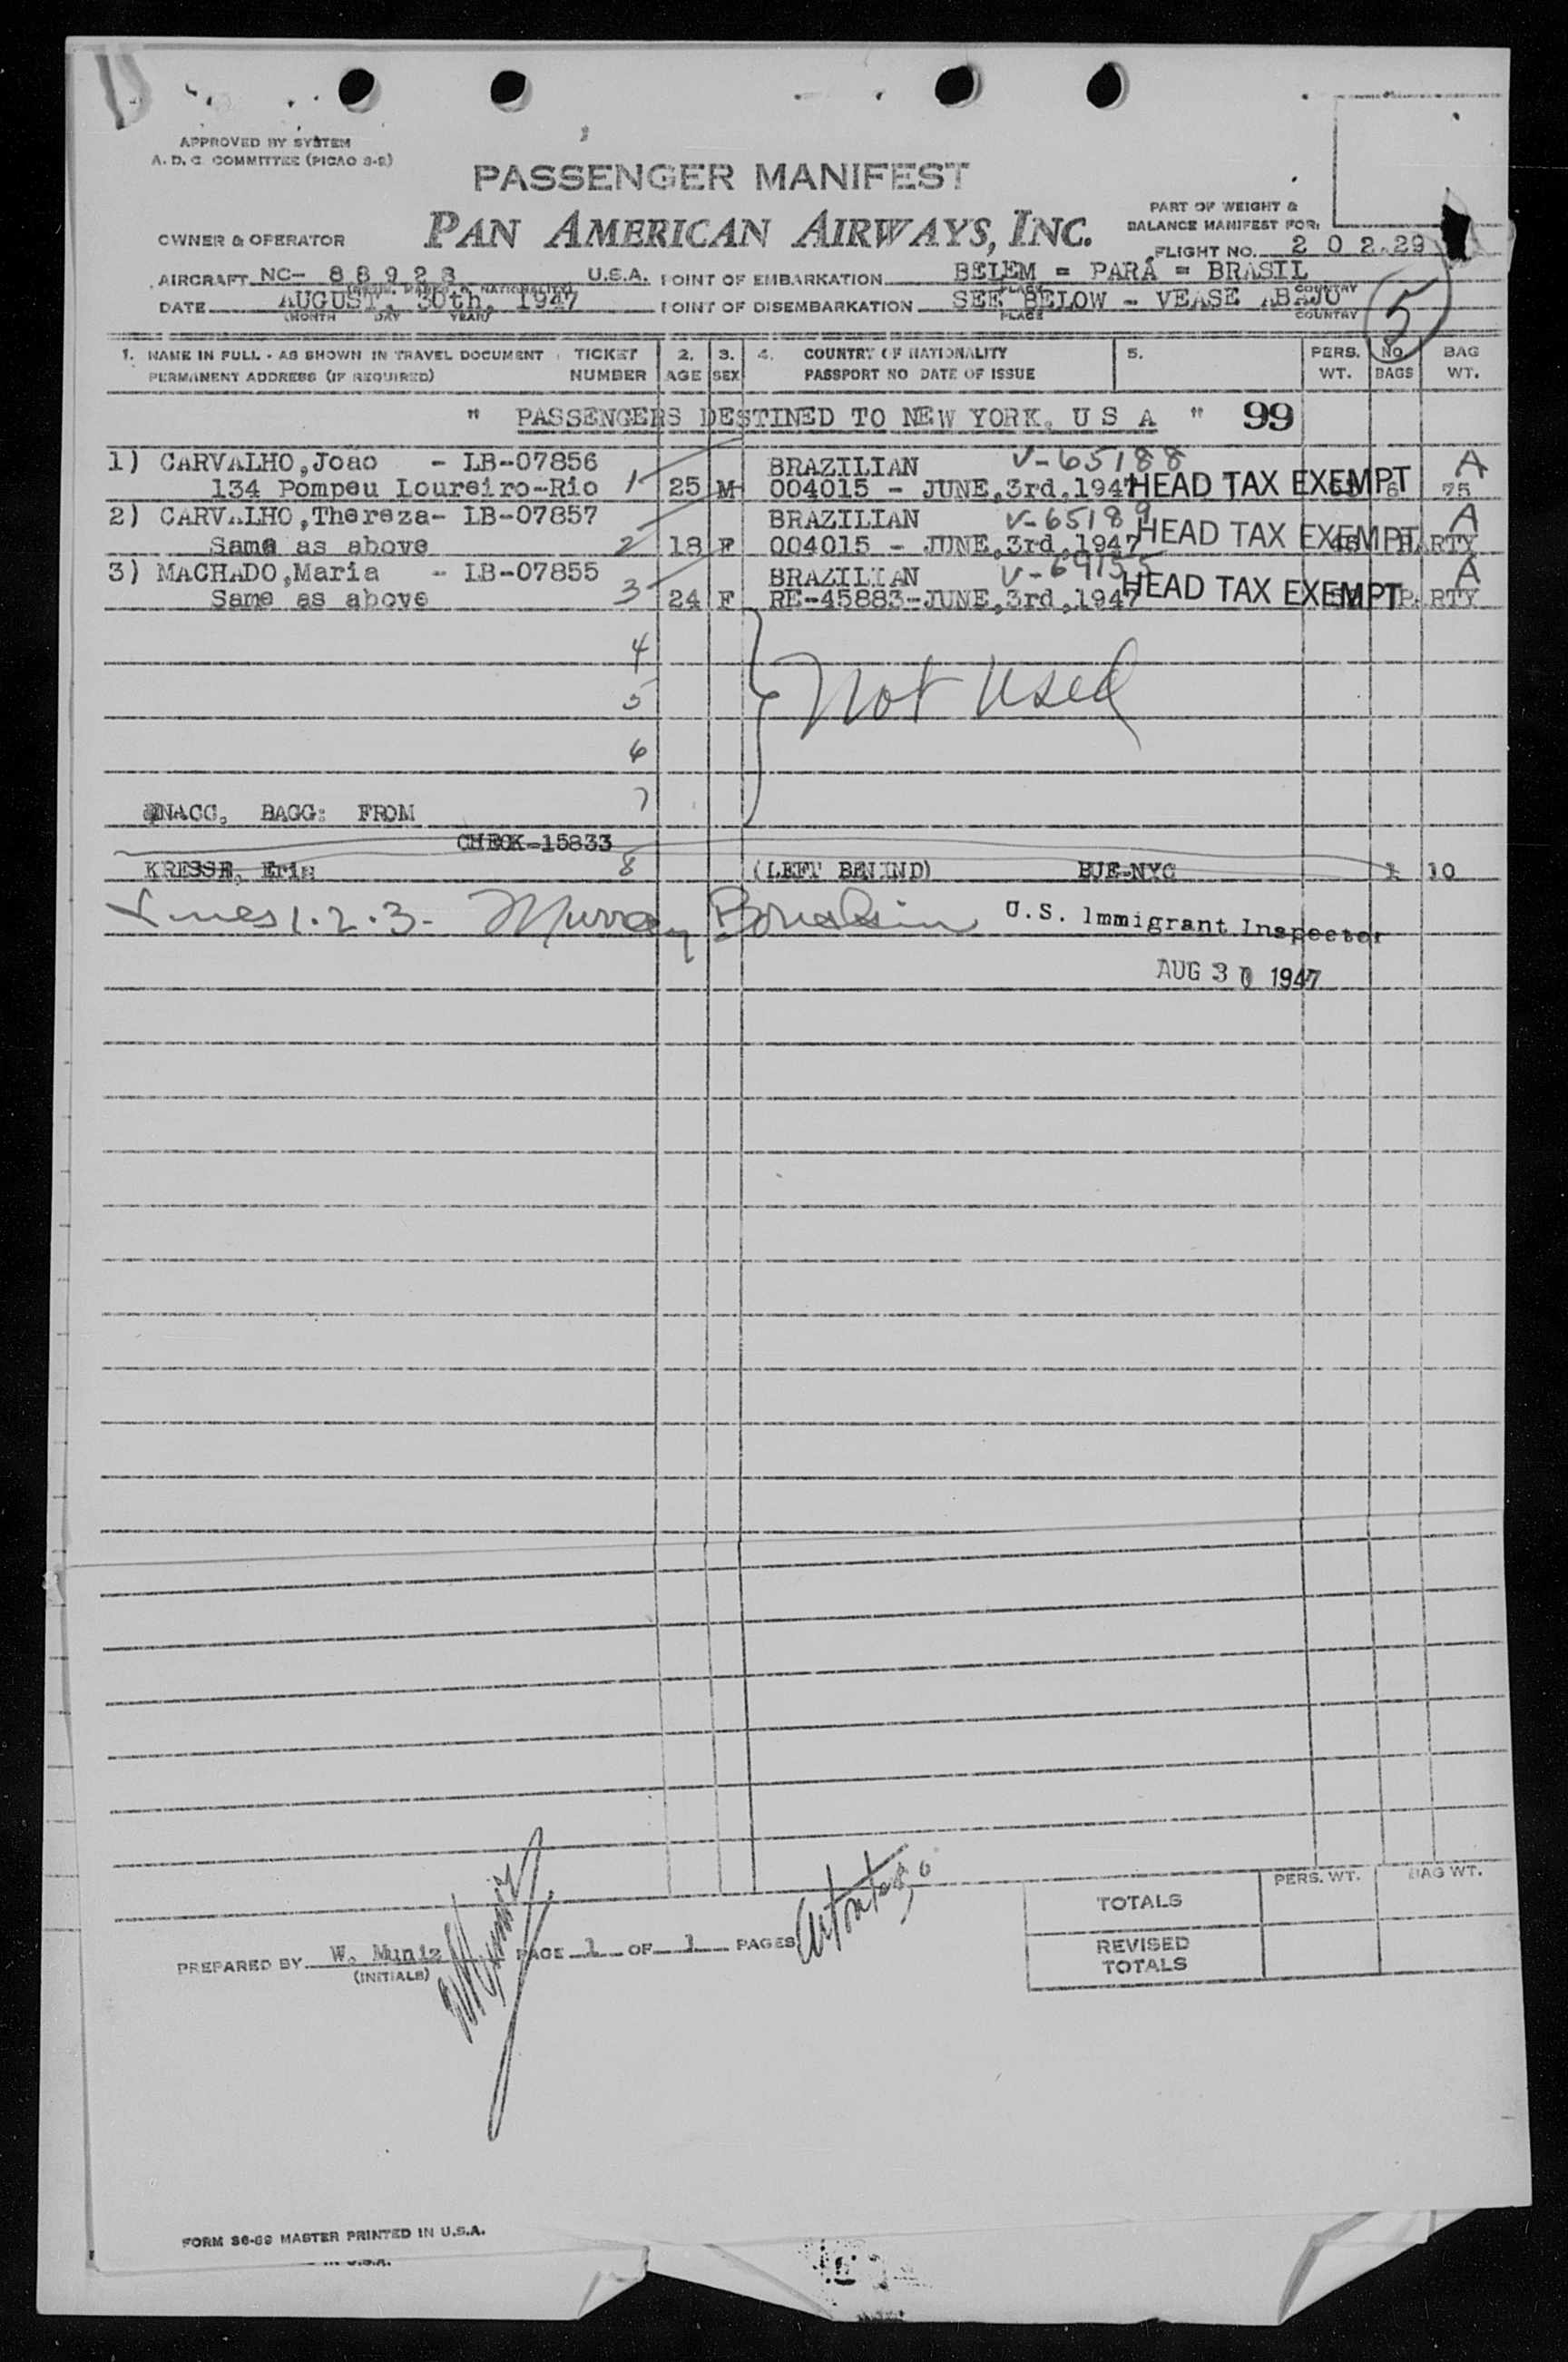 APPROVED BY SYSTEM
A. D. C. COMMITTEE (PICAO 3-2)
PASSENGER MANIFEST
PAN AMERICAN AIRWAYS, INC.
OWNER & OPERATOR
PART OF WEIGHT &
BALANCE MANIFEST FOR:
FLIGHT NO. 2 0 2-29
AIRCRAFT NC- 88923 U.S.A. POINT OF EMBARKATION BELEM = PARÁ = BRASIL
DATE AUGUST, 30th, 1947 POINT OF DISEMBARKATION SEE BELOW - VEASE ABAJO
(MONTH DAY YEAR) PLACE COUNTRY
5
1. NAME IN FULL - AS SHOWN IN TRAVEL DOCUMENT TICKET 2. 3. 4. COUNTRY OF NATIONALITY 5. PERS. NO. BAG
PERMANENT ADDRESS (IF REQUIRED) NUMBER AGE SEX PASSPORT NO DATE OF ISSUE WT. BAGS WT.
" PASSENGERS DESTINED TO NEW YORK, U S A " 99
1) CARVALHO,Joao - LB-07856 BRAZILIAN V-65188 A
134 Pompeu Loureiro-Rio 1 25 M 004015 - JUNE,3rd,1947 HEAD TAX EXEMPT 6 75
2) CARVALHO,Thereza- LB-07857 BRAZILIAN V-65189 A
Same as above 2 18 F 004015 - JUNE,3rd,1947 HEAD TAX EXEMPT PARTY
3) MACHADO,Maria - LB-07855 BRAZILIAN V-69155 A
Same as above 3 24 F RE-45883-JUNE,3rd,1947 HEAD TAX EXEMPT PARTY
4
5 Not used
6
UNACC, BAGG: FROM 7
CHECK-15833
KRESSE, 8 (LEFT BEHIND) BUE-NYC 1 10
Lines 1.2.3- Murray U.S. Immigrant Inspector
AUG 30 1947
PERS. WT. BAG WT.
TOTALS
PREPARED BY W. Muniz PAGE 1 OF 1 PAGES
(INITIALS)
REVISED
TOTALS
FORM 36-69 MASTER PRINTED IN U.S.A.
IN U.S.A.